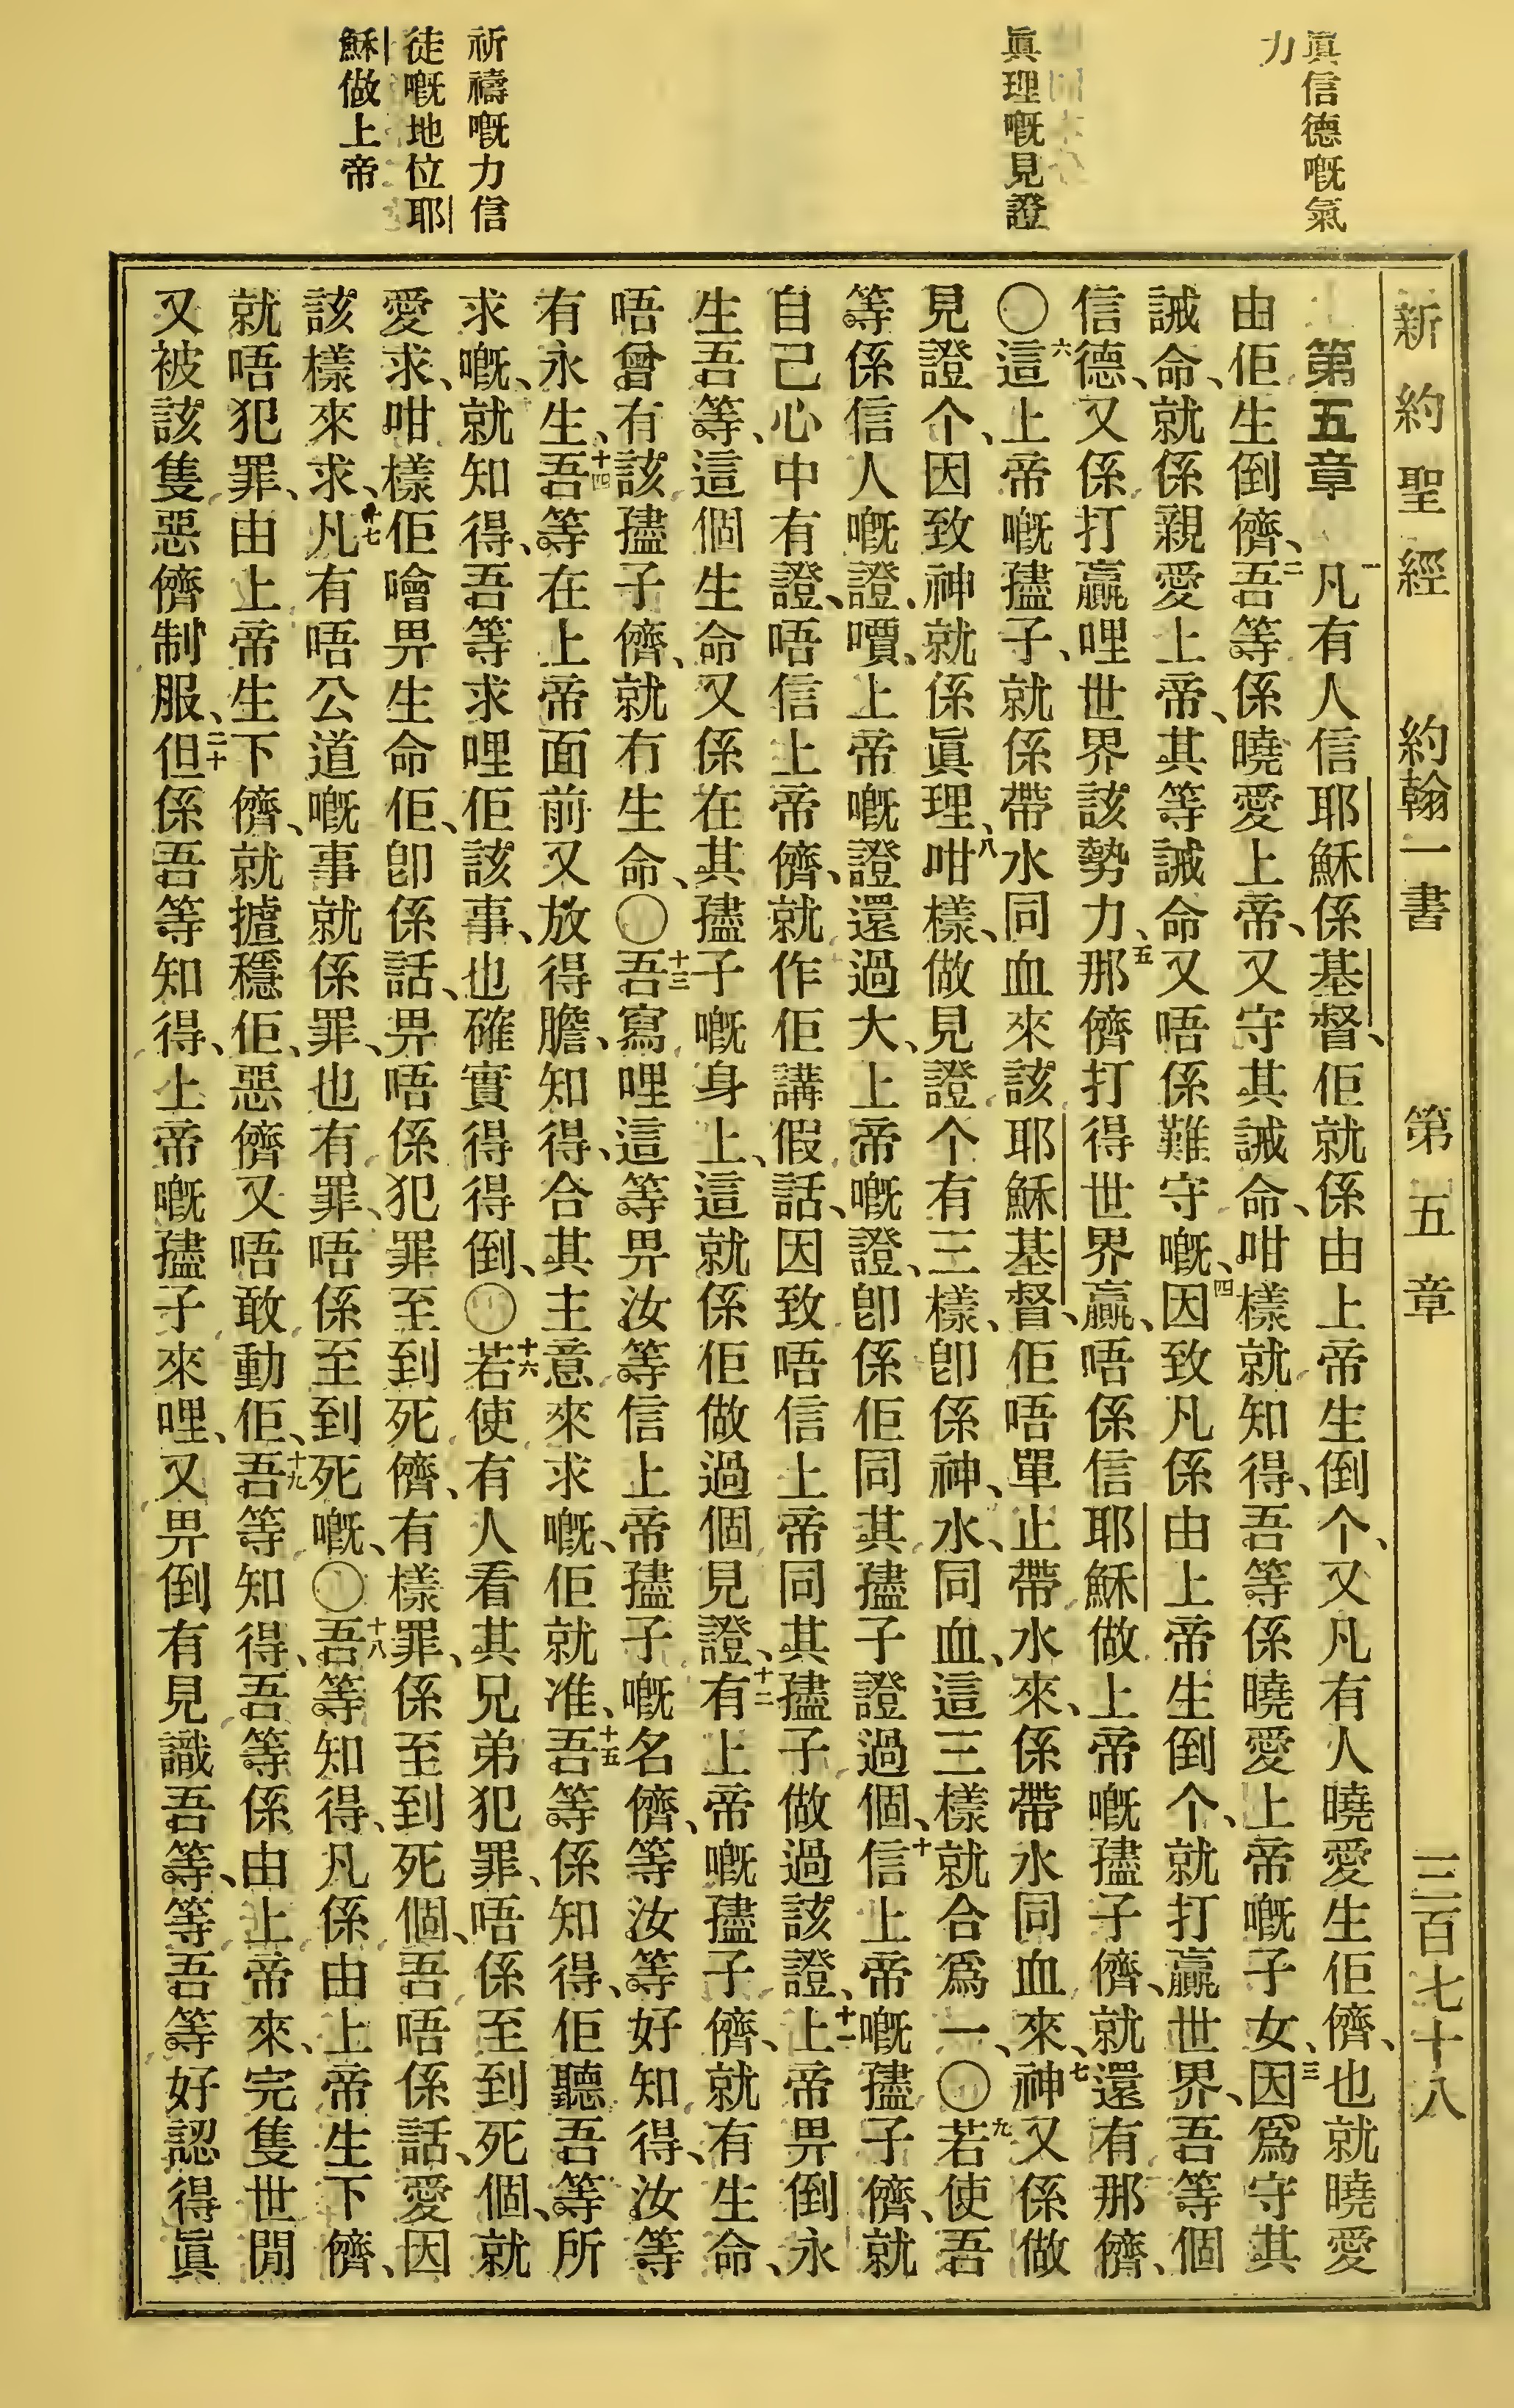 眞信德嘅氣
力
眞理嘅見證
祈禱嘅力信
徒嘅地位耶
穌做上帝
新約聖經 約翰一書 第五章 三百七十八
第五章 一凡有人信耶穌係基督、佢就係由上帝生倒个、又凡有人曉愛生佢儕、也就曉愛
由佢生倒儕、二吾等係曉愛上帝、又守其誡命、咁樣就知得、吾等係曉愛上帝嘅子女、三因爲守其
誡命、就係親愛上帝、其等誡命又唔係難守嘅、四因致凡係由上帝生倒个、就打贏世界、吾等個
信德、又係打贏哩世界該勢力、五那儕打得世界贏、唔係信耶穌做上帝嘅孻子儕、就還有那儕、
〇六這上帝嘅孻子、就係帶水同血來該耶穌基督、佢唔單止帶水來、係帶水同血來、七神又係做
見證个、因致神就係眞理、八咁樣、做見證个有三樣、卽係神、水、同血、這三樣就合爲一、〇九若使吾
等係信人嘅證、嘪、上帝嘅證還過大、上帝嘅證、卽係佢同其孻子證過個、十信上帝嘅孻子儕、就
自己心中有證、唔信上帝儕、就作佢講假話、因致唔信上帝同其孻子做過該證、十一上帝畀倒永
生吾等、這個生命又係在其孻子嘅身上、這就係佢做過個見證、十二有上帝嘅孻子儕、就有生命、
唔曾有該孻子儕、就冇生命、〇十三吾寫哩這等畀汝等信上帝孻子嘅名儕、等汝等好知得、汝等
有永生、十四吾等在上帝面前又放得膽、知得、合其主意來求嘅、佢就准、十五吾等係知得、佢聽吾等所
求嘅、就知得、吾等求哩佢該事、也確實得得倒、〇十六若使有人看其兄弟犯罪、唔係至到死個、就
愛求、咁樣佢噲畀生命佢、卽係話、畀唔係犯罪至到死儕、有樣罪、係至到死個、吾唔係話、愛因
該樣來求、十七凡有唔公道嘅事就係罪、也有罪、唔係至到死嘅、〇十八吾等知得、凡係由上帝生下儕、
就唔犯罪、由上帝生下儕、就攎穩佢、惡儕又唔敢動佢、十九吾等知得、吾等係由上帝來、完隻世閒
又被該隻惡儕制服、二十但係吾等知得、上帝嘅孻子來哩、又畀倒有見識吾等、等吾等好認得眞